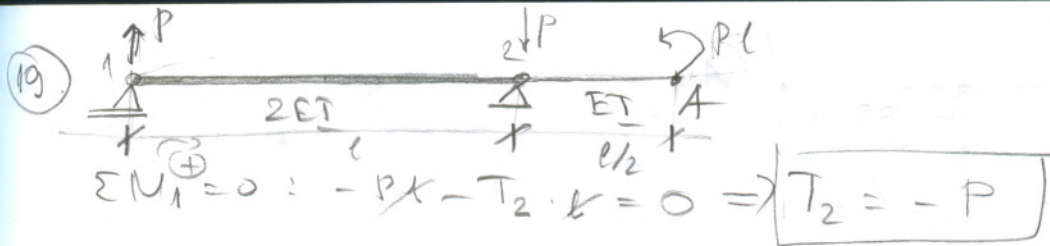 19
P
1
2
P
Pl
2EI
EI
A
l
l/2
ΣM₁ = 0 : -Pl - T₂ · l = 0 => T₂ = - P